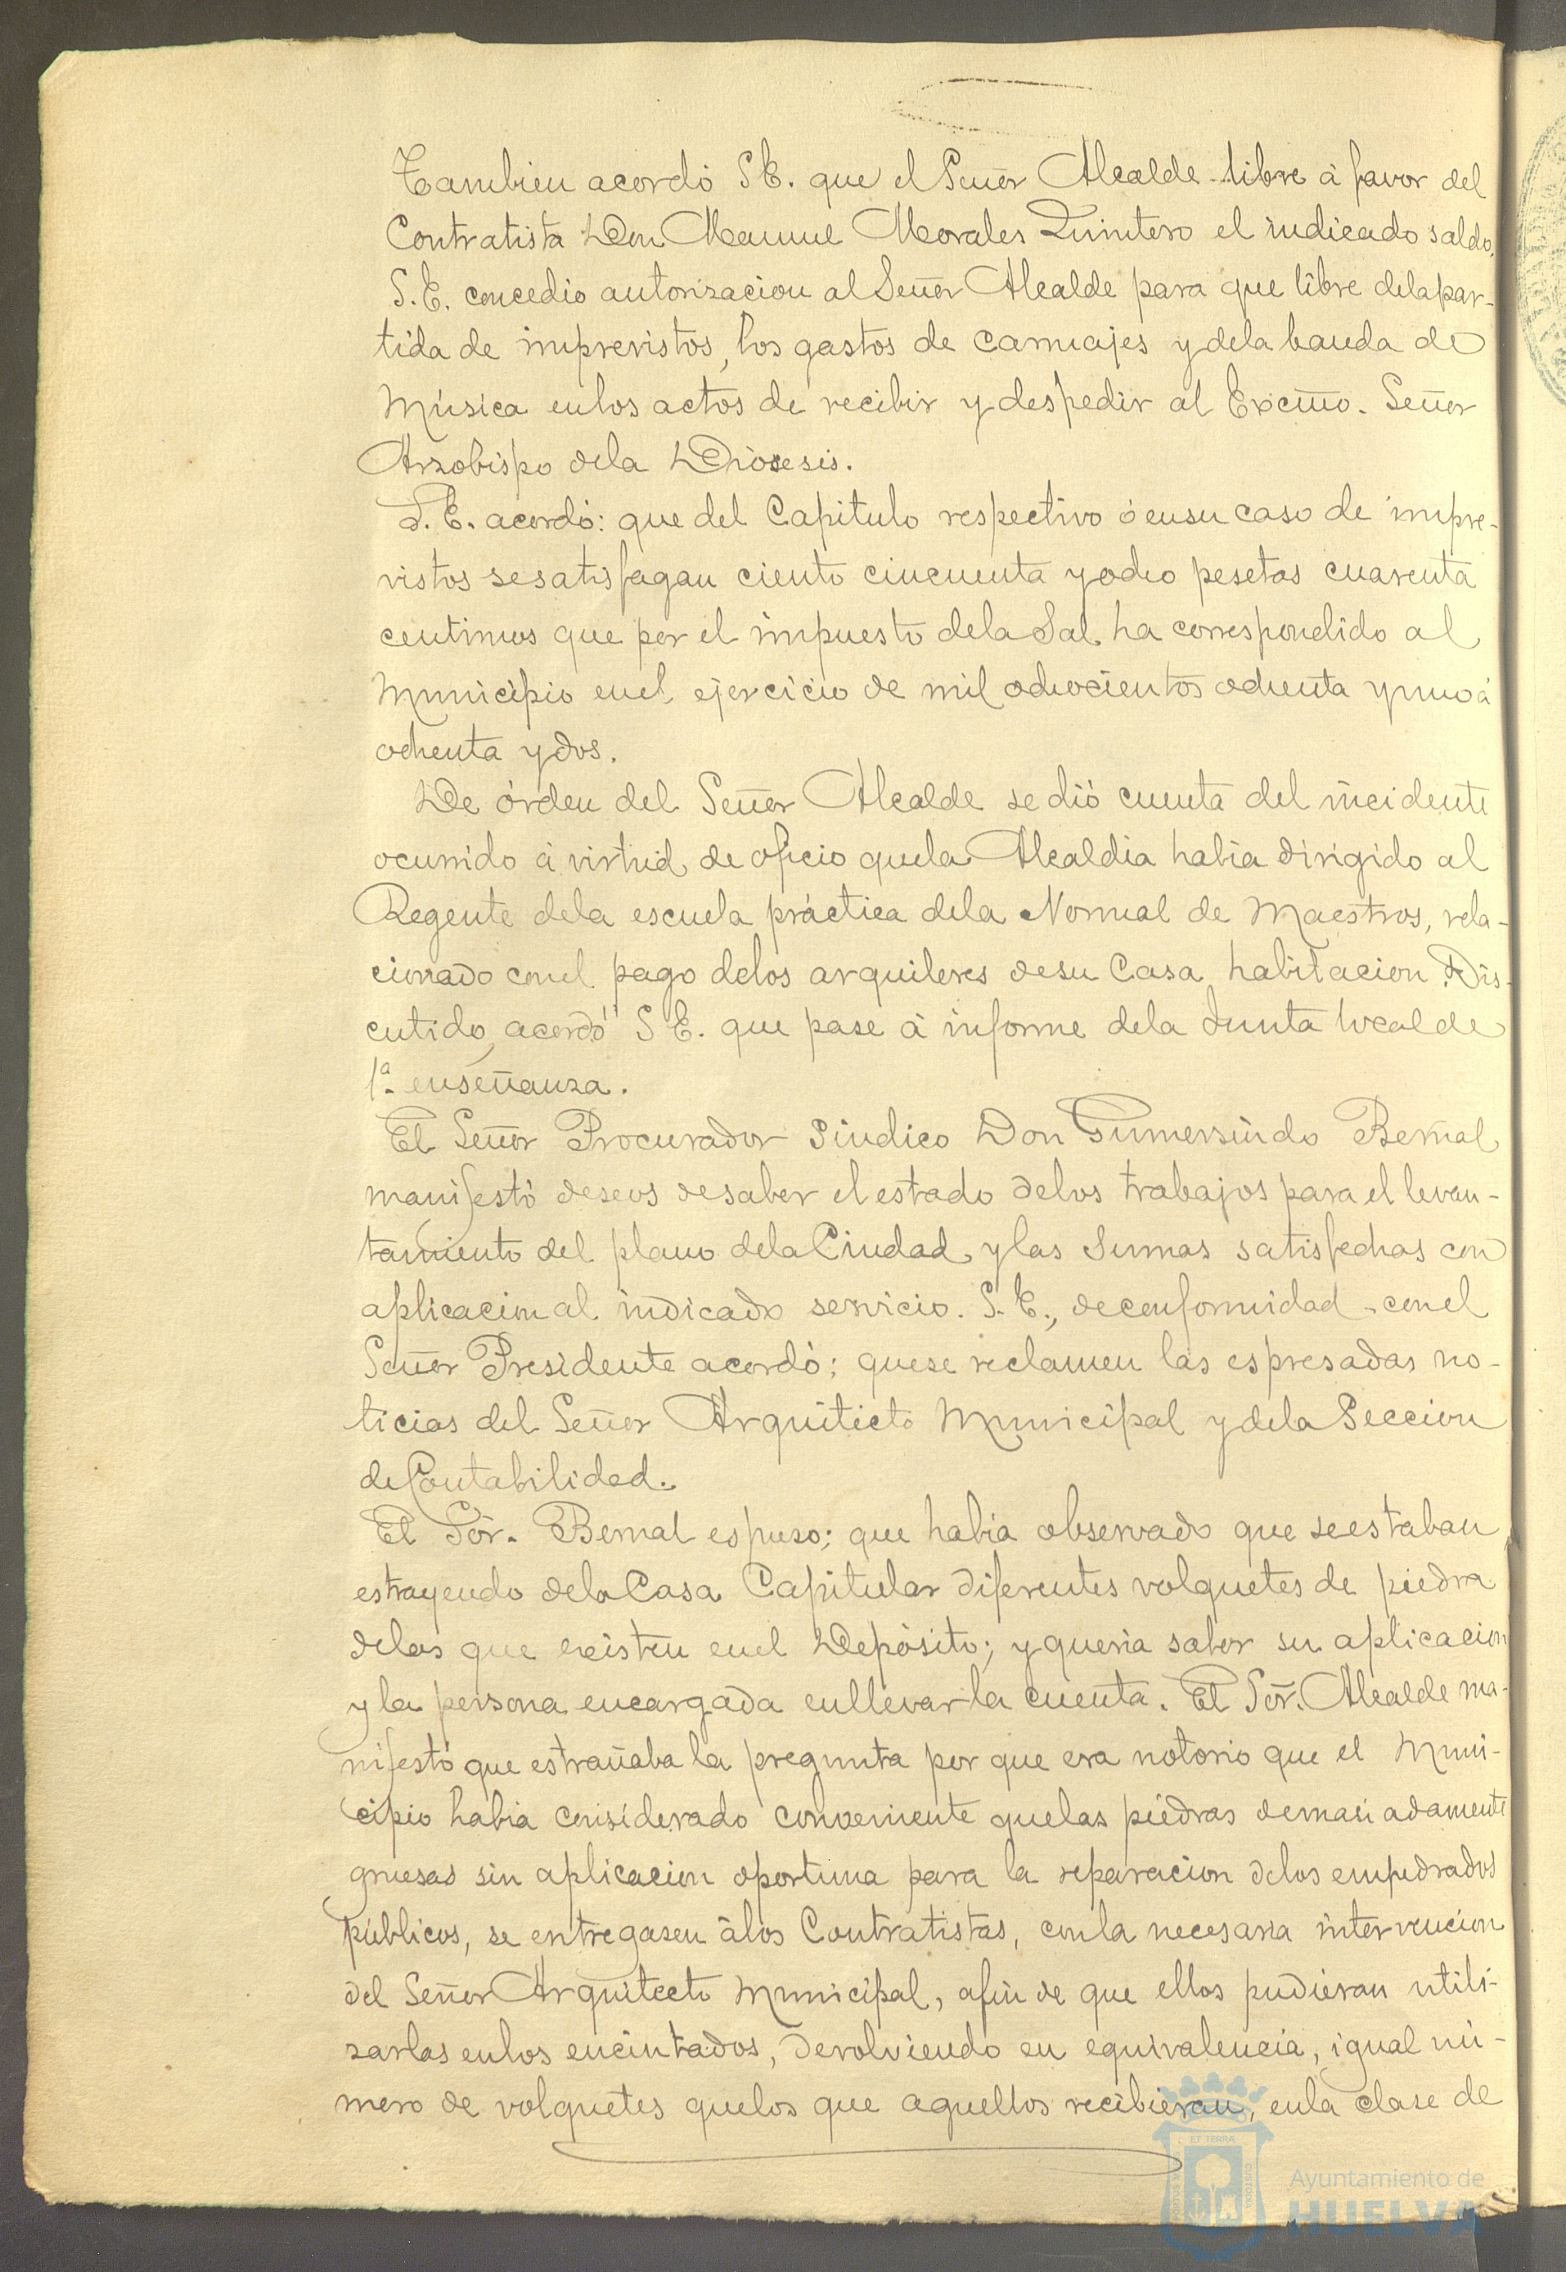 Tambien acordó S.E. que el Señor Alcalde libre á favor del
Contratista Don Manuel Morales Quintero el indicado saldo.
S.E. concedio autorizacion al Señor Alcalde para que libre dela par-
tida de imprevistos, los gastos de carruajes y dela banda de
Música enlos actos de recibir y despedir al Excmo. Señor
Arzobispo dela Diócesis.
S.E. acordó: que del Capitulo respectivo ó ensu caso de impre-
vistos sesatisfagan ciento cincuenta y ocho pesetas cuarenta
centimos que por el impuesto dela Sal ha correspondido al
Municipio enel ejercicio de mil ochocientos ochenta y uno á
ochenta y dos.
De órden del Señor Alcalde se dió cuenta del incidente
ocurrido á virtud de oficio quela Alcaldia habia dirigido al
Regente dela escuela práctica dela Normal de Maestros, rela-
cionado conel pago delos arquileres desu Casa habitacion. Dis-
cutido, acordó S.E. que pase á informe dela Junta local de
1ª. enseñanza.
El Señor Procurador Sindico Don Gumersindo Bernal
manifestó deseos desaber el estado delos trabajos para el levan-
tamiento del plano dela Ciudad y las Sumas satisfechas con
aplicacion al indicado servicio. S.E., deconformidad conel
Señor Presidente acordó; quese reclamen las espresadas no-
ticias del Señor Arquitecto Municipal y dela Seccion
de Contabilidad.
El Sôr. Bernal espuso; que habia observado que seestaban
estrayendo dela Casa Capitular diferentes volquetes de piedra
delas que existen enel Depósito; y queria saber su aplicacion
y la persona encargada enllevar la cuenta. El Sôr. Alcalde ma-
nifestó que estrañaba la pregunta por que era notorio que el Muni-
cipio habia considerado conveniente quelas piedras demasiadamente
gruesas sin aplicacion oportuna para la reparacion delos empedrados
públicos, se entregasen álos Contratistas, conla necesaria intervencion
del Señor Arquitecto Municipal, afin de que ellos pudieran utili-
zarlas enlos encintados, devolviendo en equivalencia, igual nú-
mero de volquetes quelos que aquellos recibieran, enla clase de
ET TERRÆ
Ayuntamiento de
HUELVA